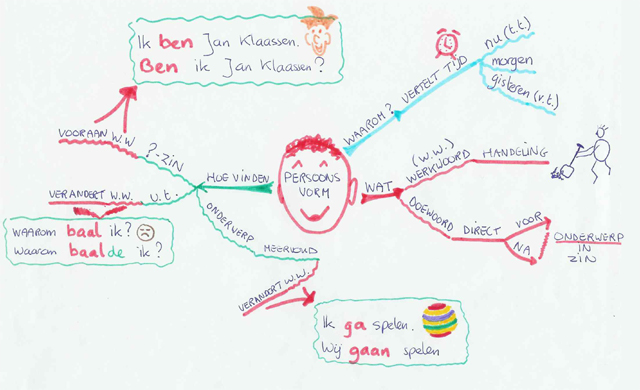 Ik ben Jan Klaassen.
Ben ik Jan Klaassen?
nu (t.t.)
morgen
gisteren (v.t.)
WAAROM?
VERTELT TIJD
VOORAAN W.W
?-ZIN
HOE VINDEN
PERSOONS
VORM
WAT
(W.W.)
WERKWOORD
HANDELING
VERANDERT W.W.
v.t.
waarom baal ik?
waarom baalde ik?
ONDERWERP
MEERVOUD
VERANDERT W.W.
DOEWOORD
DIRECT
VOOR
NA
ONDERWERP
IN
ZIN
Ik ga spelen.
Wij gaan spelen